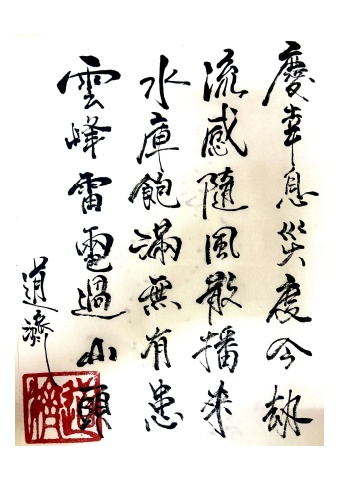 慶幸息災度今劫
流感隨風散播来
水庫飽滿無有患
雲峰雷電過山頭
道濟
道濟